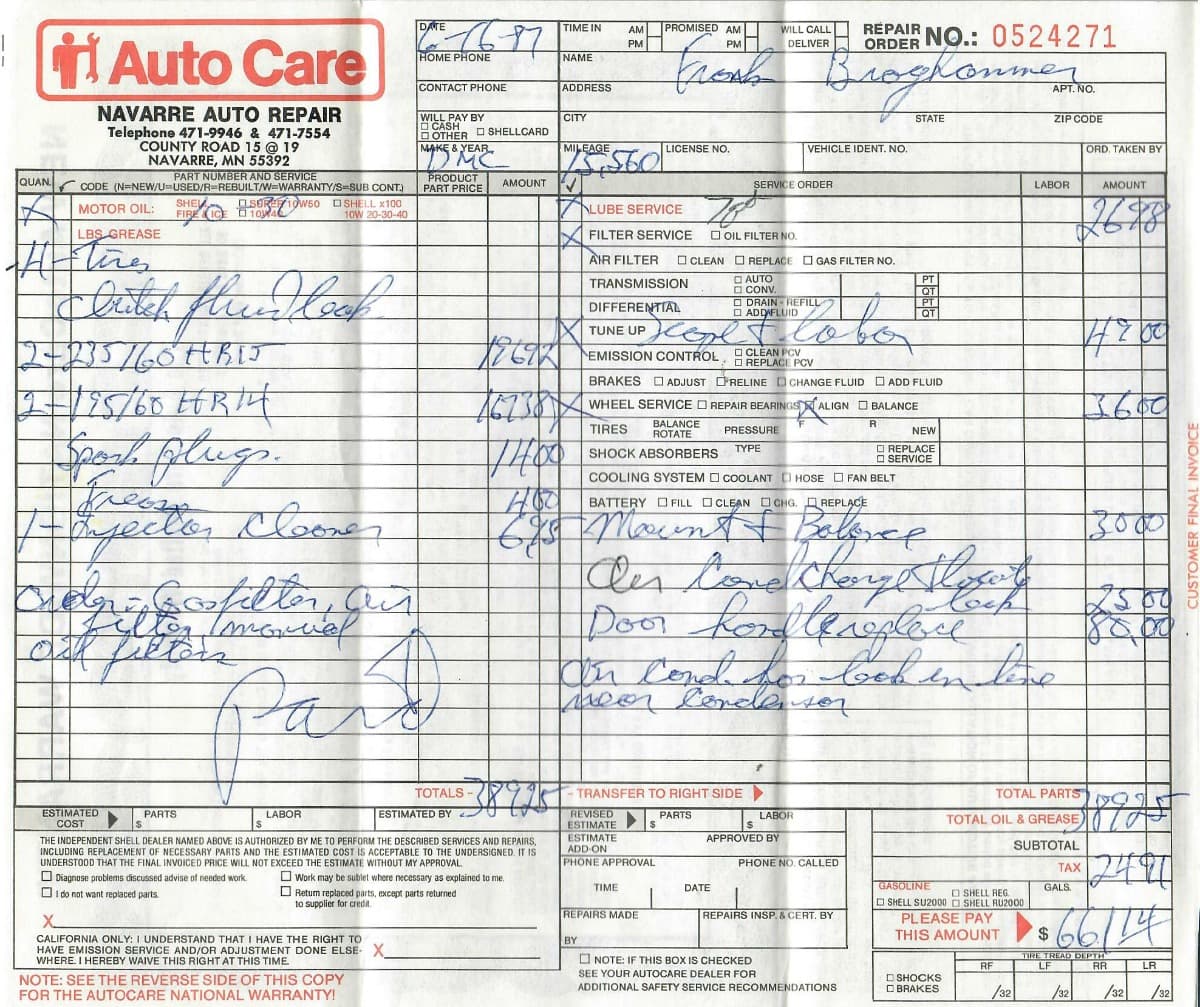 Auto Care
NAVARRE AUTO REPAIR
Telephone 471-9946 & 471-7554
COUNTY ROAD 15 @ 19
NAVARRE, MN 55392
DATE 6-16-87
TIME IN AM PM PROMISED AM PM WILL CALL DELIVER
REPAIR ORDER NO.: 0524271
HOME PHONE
NAME Frank Broghammer
CONTACT PHONE
ADDRESS APT. NO.
WILL PAY BY
CASH
OTHER SHELLCARD
CITY STATE ZIP CODE
MAKE & YEAR DMC
MILEAGE 15,560
LICENSE NO.
VEHICLE IDENT. NO.
ORD. TAKEN BY
QUAN. PART NUMBER AND SERVICE
CODE (N=NEW/U=USED/R=REBUILT/W=WARRANTY/S=SUB CONT.)
PRODUCT PART PRICE AMOUNT
X MOTOR OIL: SHELL FIRE & ICE SUPER 10W50 10W40 SHELL x100 10W 20-30-40
10-30
LBS GREASE
4-Tires
Clutch fluid leak
2-235/60 HR15 19692
2-195/60 HR14 16738
Spark plugs. 1400
Freon 400
1-Injector Cleaner 695
Order-Gas filter, air
filter, manual
oil filters
Paid
TOTALS - 38925 - TRANSFER TO RIGHT SIDE
✓ SERVICE ORDER LABOR AMOUNT
X LUBE SERVICE 2698
X FILTER SERVICE OIL FILTER NO.
AIR FILTER CLEAN REPLACE GAS FILTER NO.
TRANSMISSION AUTO CONV. PT QT
DIFFERENTIAL DRAIN - REFILL ADD FLUID PT QT
X TUNE UP Scope & labor 4900
EMISSION CONTROL CLEAN PCV REPLACE PCV
BRAKES ADJUST RELINE CHANGE FLUID ADD FLUID
X WHEEL SERVICE REPAIR BEARINGS X ALIGN BALANCE 3600
TIRES BALANCE ROTATE PRESSURE F R NEW
SHOCK ABSORBERS TYPE REPLACE SERVICE
COOLING SYSTEM COOLANT HOSE FAN BELT
BATTERY FILL CLEAN CHG. REPLACE
Mount & Balance 3000
Air Cond charge & locate
leak 2500
Door handle replace 80,00
Air Cond. has leak in line
near Condensor
TOTAL PARTS 38925
TOTAL OIL & GREASE
SUBTOTAL
TAX 2491
GASOLINE SHELL REG. GALS.
SHELL SU2000 SHELL RU2000
PLEASE PAY THIS AMOUNT $ 66114
ESTIMATED COST PARTS $ LABOR $ ESTIMATED BY
THE INDEPENDENT SHELL DEALER NAMED ABOVE IS AUTHORIZED BY ME TO PERFORM THE DESCRIBED SERVICES AND REPAIRS,
INCLUDING REPLACEMENT OF NECESSARY PARTS AND THE ESTIMATED COST IS ACCEPTABLE TO THE UNDERSIGNED. IT IS
UNDERSTOOD THAT THE FINAL INVOICED PRICE WILL NOT EXCEED THE ESTIMATE WITHOUT MY APPROVAL.
Diagnose problems discussed advise of needed work.
Work may be sublet where necessary as explained to me.
I do not want replaced parts.
Return replaced parts, except parts returned
to supplier for credit.
X
CALIFORNIA ONLY: I UNDERSTAND THAT I HAVE THE RIGHT TO
HAVE EMISSION SERVICE AND/OR ADJUSTMENT DONE ELSE-
WHERE. I HEREBY WAIVE THIS RIGHT AT THIS TIME.
X
NOTE: SEE THE REVERSE SIDE OF THIS COPY
FOR THE AUTOCARE NATIONAL WARRANTY!
REVISED ESTIMATE PARTS $ LABOR $
ESTIMATE ADD-ON APPROVED BY
PHONE APPROVAL PHONE NO. CALLED
TIME DATE
REPAIRS MADE REPAIRS INSP. & CERT. BY
BY
NOTE: IF THIS BOX IS CHECKED
SEE YOUR AUTOCARE DEALER FOR
ADDITIONAL SAFETY SERVICE RECOMMENDATIONS
SHOCKS
BRAKES
TIRE TREAD DEPTH
RF LF RR LR
/32 /32 /32 /32
CUSTOMER FINAL INVOICE